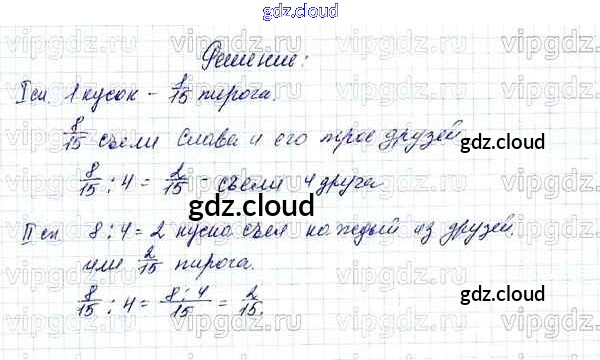 gdz.cloud
Решение:
I сп. 1 кусок – 1/15 пирога.
8/15 съели Слава и его трое друзей
gdz.cloud
8/15 : 4 = 2/15 – съели 4 друга
gdz.cloud
II сп. 8 : 4 = 2 куска съел каждый из друзей,
или 2/15 пирога.
gdz.cloud
8/15 : 4 = 8:4/15 = 2/15.